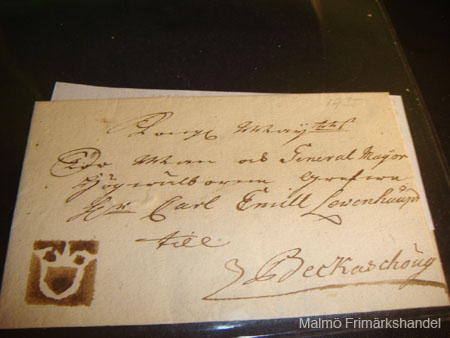 Kongl May:ttz
Tro Man och General Mayor
Högwälborne Grefwe
Hr Carl Emill Lewenhaupt
till
Beckaschöug
Malmö Frimärkshandel